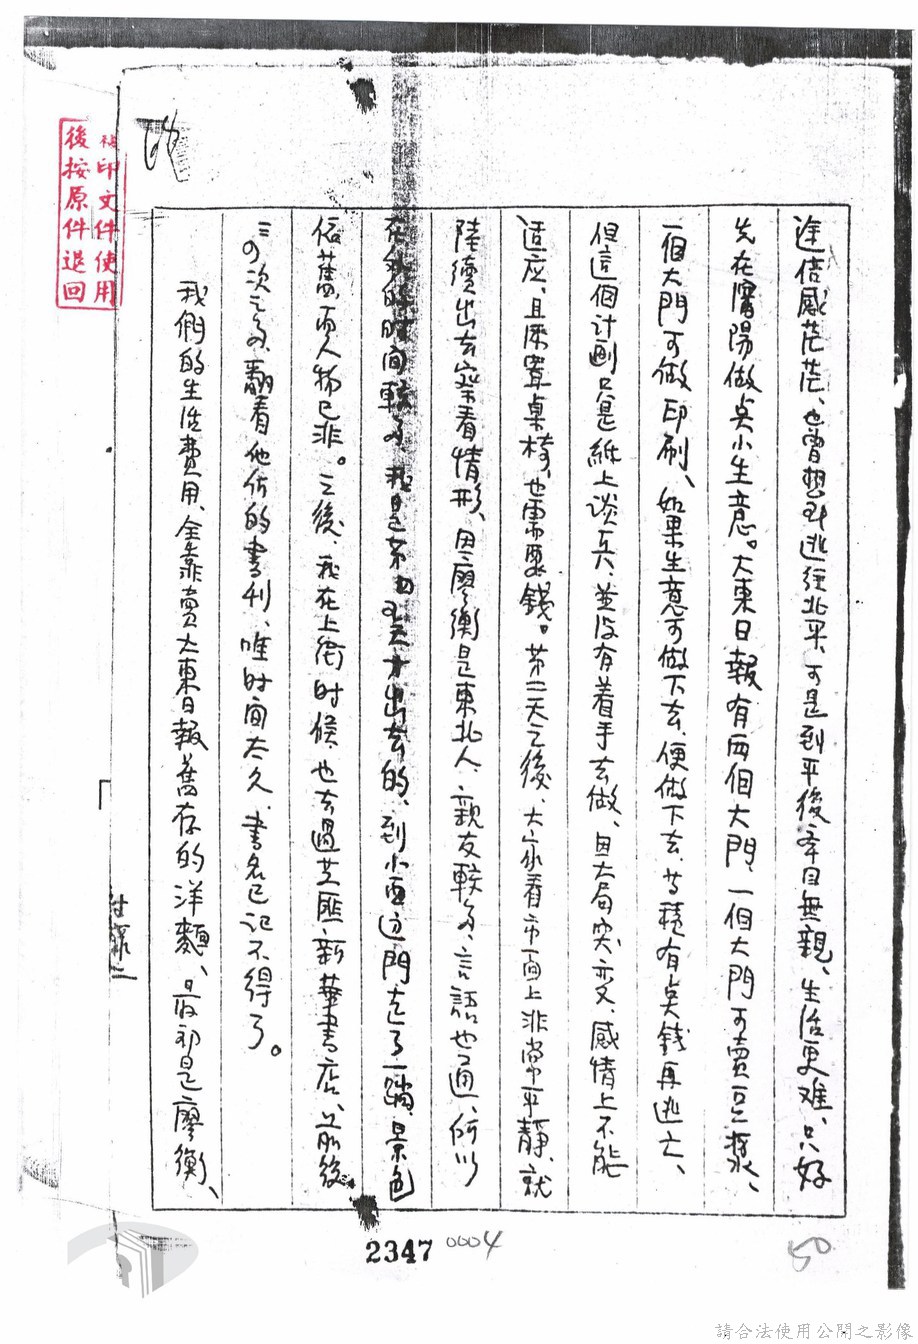 途倍感茫茫、也曾想到逃往北平、可是到平後舉目無親、生活更难、只好
先在瀋陽做点小生意。大東日報有両個大門、一個大門可賣豆漿、
一個大門可做印刷、如果生意可做下去、便做下去、等積有点錢再逃亡、
但這個計劃只是紙上談兵、並没有着手去做、因大局突变、感情上不能
适应、且床單桌椅、也需要錢。第二天之後、大家看市面上非常平靜、就
陸續出去察看情形、因廖衡是東北人、親友較多、言語也通、所以
在外的时间較多、我是第四天才出去的、到小西边門走了一趟、景色
依舊、而人物已非。之後、我在上街时候、也去過共匪新華書店、前後
三四次之多、翻看他们的書刊、唯时间太久、書名已記不得了。
我們的生活費用、全靠賣大東日報舊存的洋麵、最初是廖衡、
付録二
2347
0004
50
複印文件使用
後按原件退回
請合法使用公開之影像